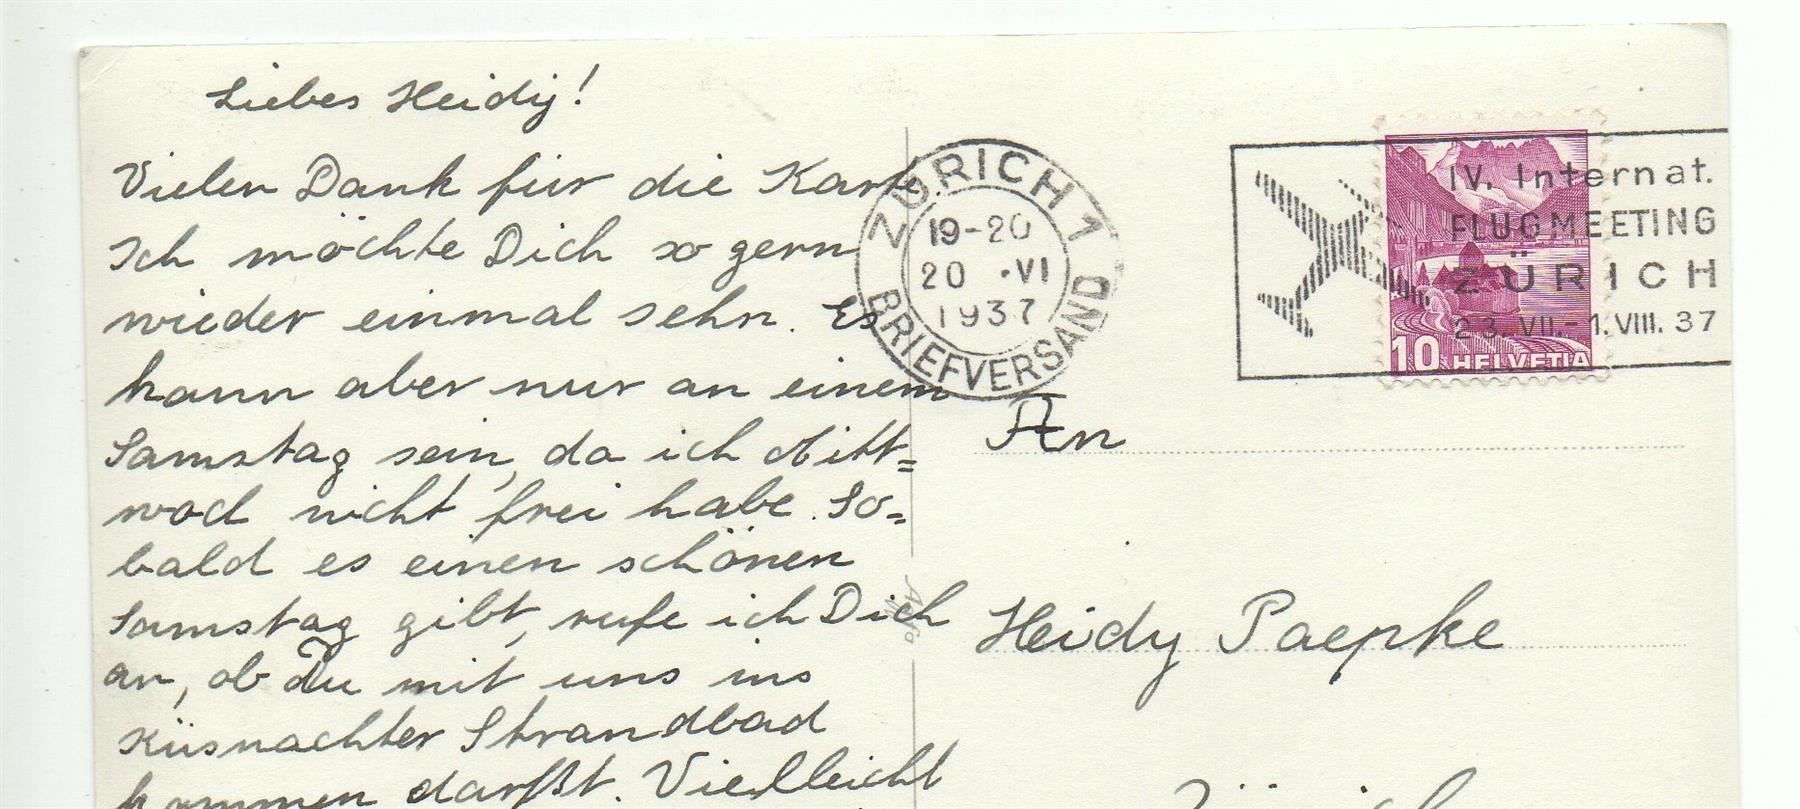 Liebes Heidy!
Vielen Dank für die Karte
Ich möchte Dich so gern
wieder einmal sehn. Es
kann aber nur an einem
Samstag sein, da ich Mitt=
woch nicht frei habe. So=
bald es einen schönen
Samstag gibt, rufe ich Dich
an, ob Du mit uns ins
Küsnachter Strandbad
kommen darfst. Vielleicht
ZÜRICH 1
19-20
20 .VI
1937
BRIEFVERSAND
IV. Internat.
FLUGMEETING
ZÜRICH
23. VII.- 1. VIII. 37
10 HELVETIA
An
Heidy Paepke